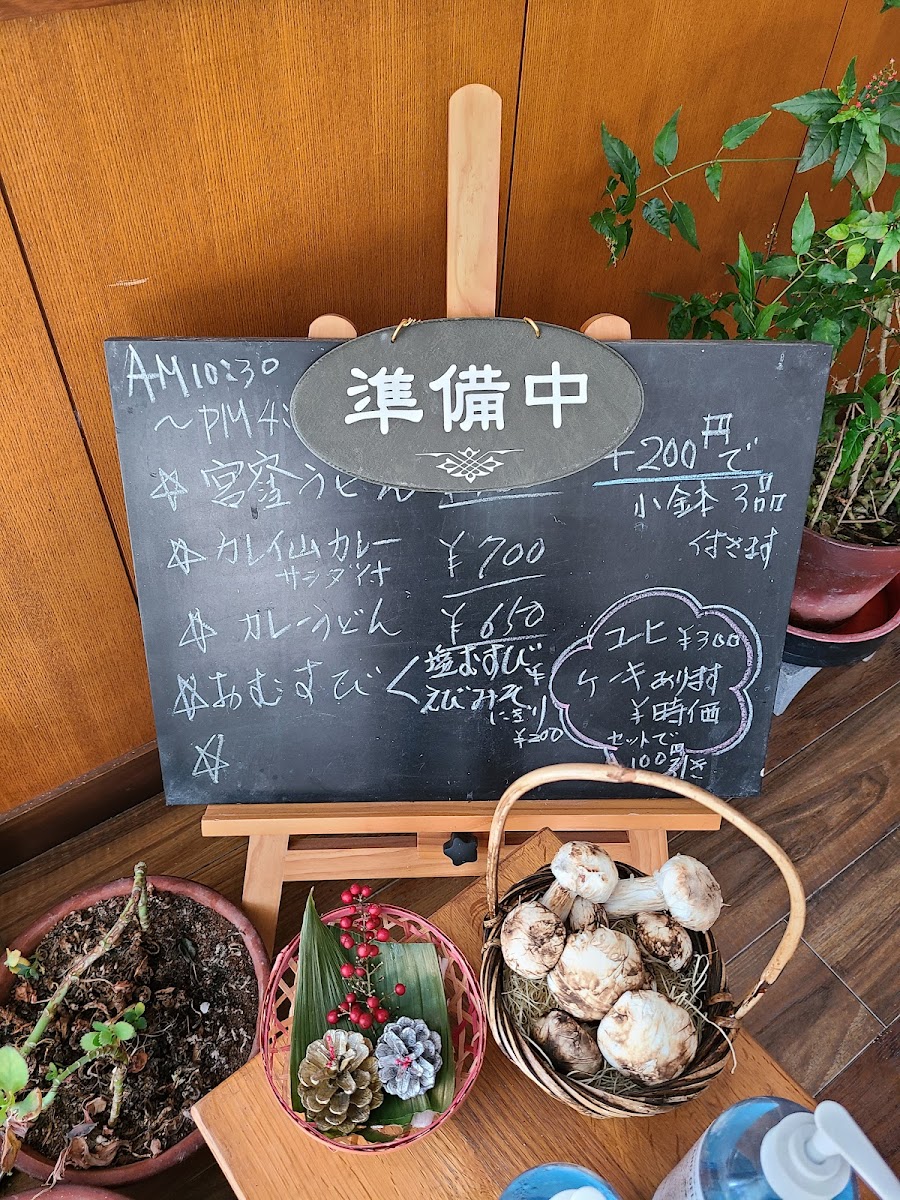 準備中
AM10:30
～PM4:
☆宮窪うどん
☆カレイ山カレー ￥700
サラダ付
☆カレーうどん ￥650
☆おむすび く 塩むすび
えびみそ
にぎり
￥200
☆
+200円で
小鉢3品
付きます
コーヒ ￥300
ケーキあります
￥時価
セットで
100円引き